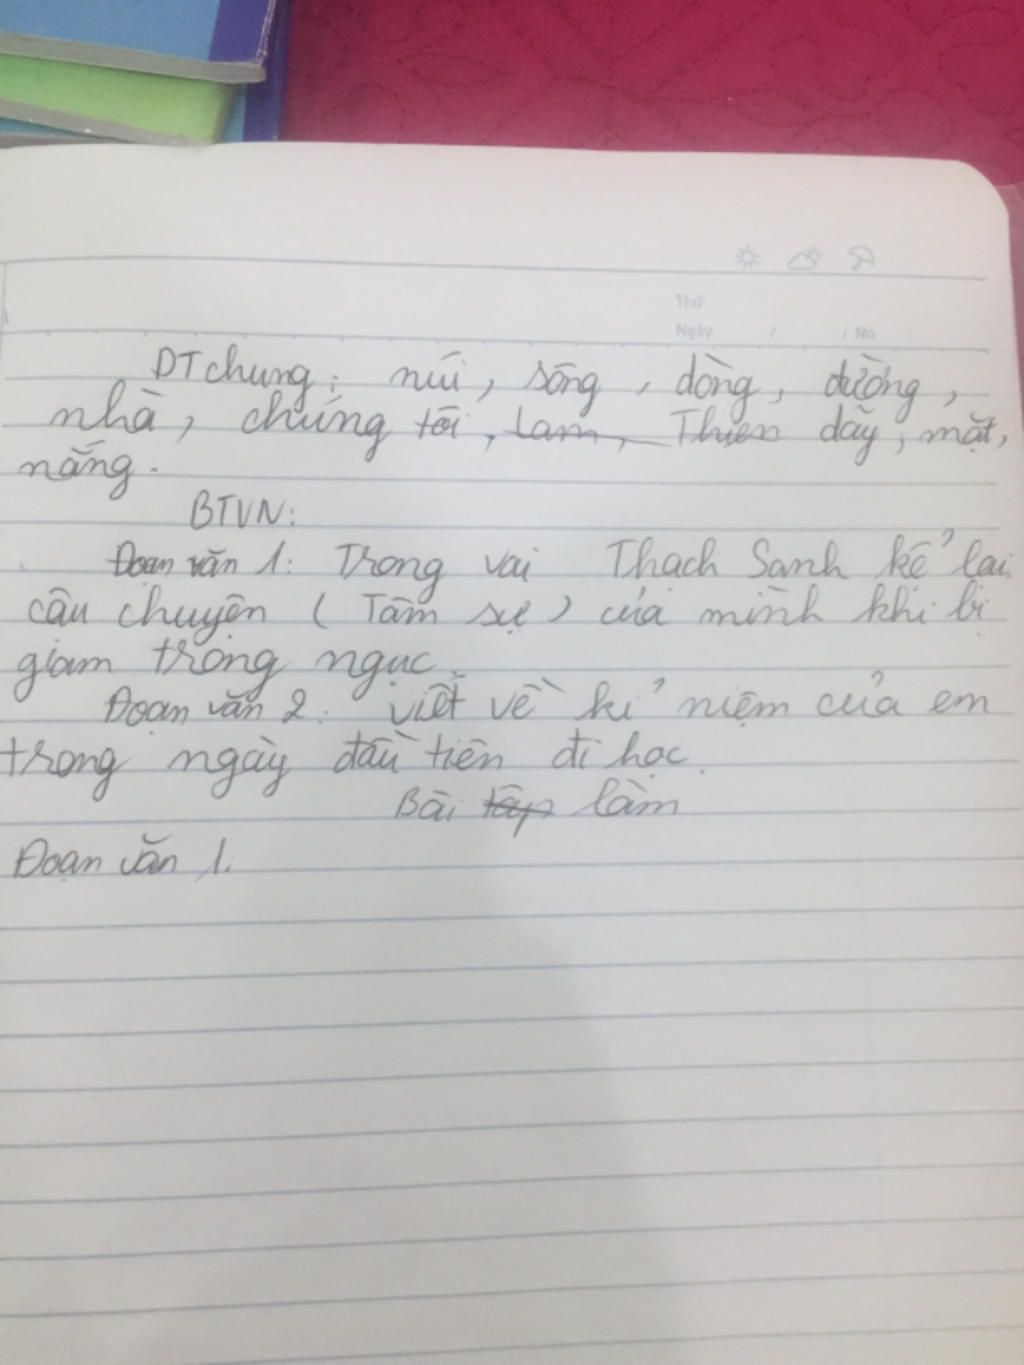 Thứ
Ngày / / No
DT chung: núi, sông, dòng, đường,
nhà, chúng tôi, Lam, Thiên dãy, mặt,
nắng.
BTVN:
Đoạn văn 1: Trong vai Thạch Sanh kể lại
câu chuyện (Tâm sự) của mình khi bị
giam trong ngục.
Đoạn văn 2: viết về kỉ niệm của em
trong ngày đầu tiên đi học.
Bài tập làm
Đoạn văn 1.